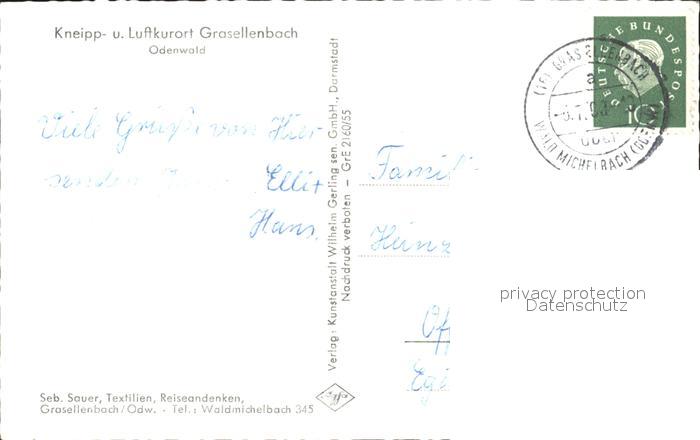 Kneipp- u. Luftkurort Grasellenbach
Odenwald
Viele Grüße von Hier
senden Elli +
Hans.
Verlag: Kunstanstalt Wilhelm Gerling sen. GmbH., Darmstadt
Nachdruck verboten - GrE 2160/55
DEUTSCHE BUNDESPOST
10
(16) GRASELLENBACH
WALD MICHELBACH (ODENW)
Famil
Heinz
Off
privacy protection
Datenschutz
Seb. Sauer, Textilien, Reiseandenken,
Grasellenbach/Odw. - Tel.: Waldmichelbach 345